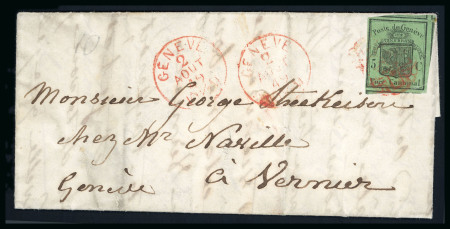 GENEVE
2
AOUT
49
GENEVE
2
Poste de Genève
5 C
Port Cantonal
Monsieur George Streckeisen
chez Mr Naville
à Vernier
Genève